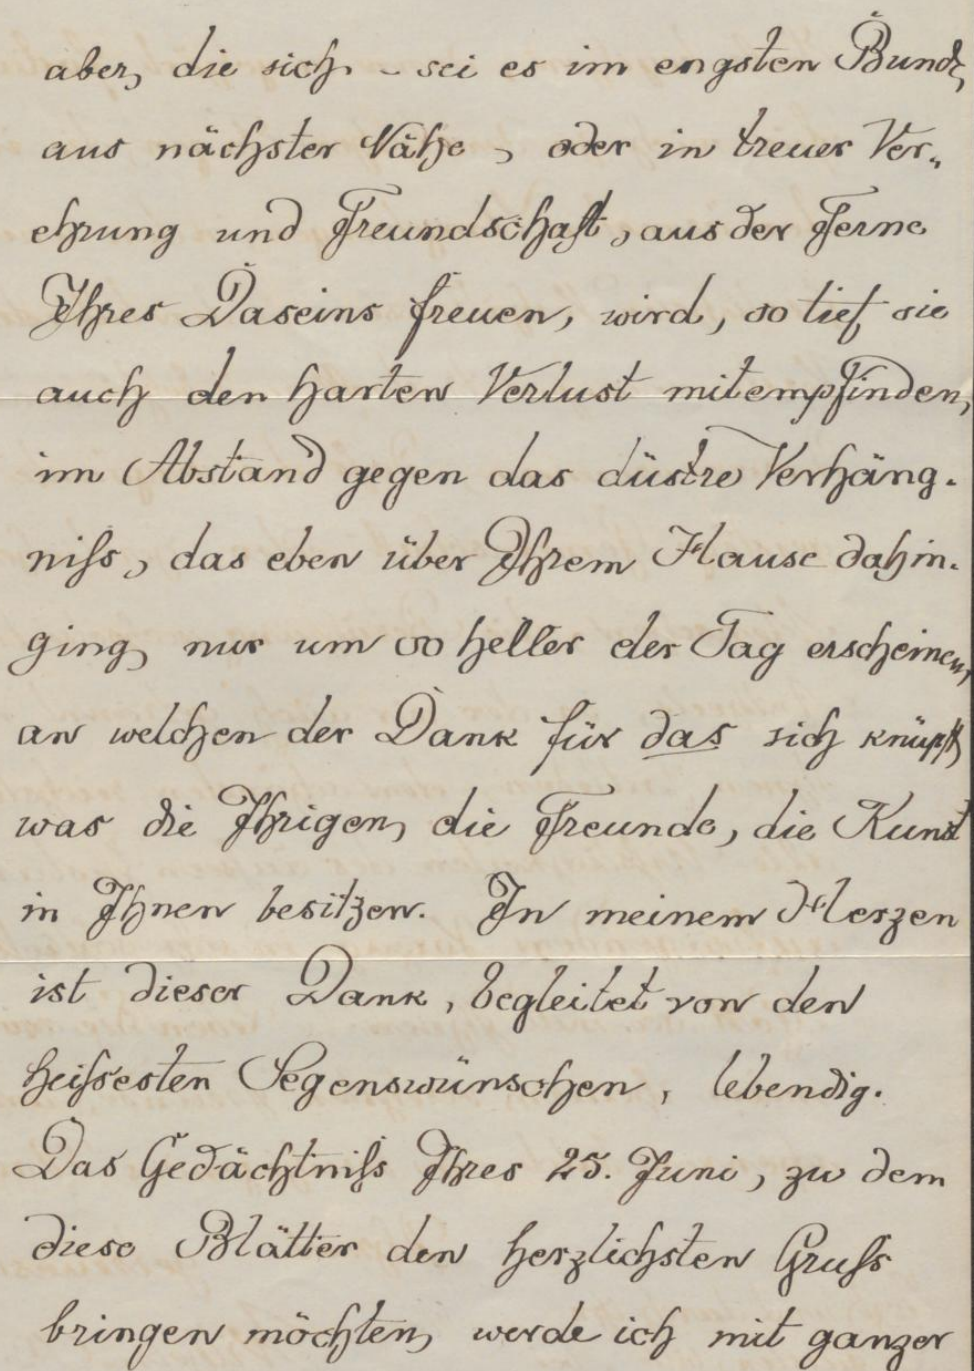 aber, die sich - sei es im engsten Bunde,
aus nächster Nähe, oder in treuer Ver„
ehrung und Freundschaft, aus der Ferne
Ihres Daseins freuen, wird, so tief sie
auch den harten Verlust mitempfinden,
im Abstand gegen das düstre Verhäng-
niſs, das eben über Ihrem Hause dahin-
ging, nur um so heller der Tag erscheinen,
an welchen der Dank für das sich knüpft,
was die Ihrigen, die Freunde, die Kunst
in Ihnen besitzen. In meinem Herzen
ist dieser Dank, begleitet von den
heiſsesten Segenswünschen, lebendig.
Das Gedächtniſs Ihres 25. Juni, zu dem
diese Blätter den herzlichsten Gruſs
bringen möchten, werde ich mit ganzer